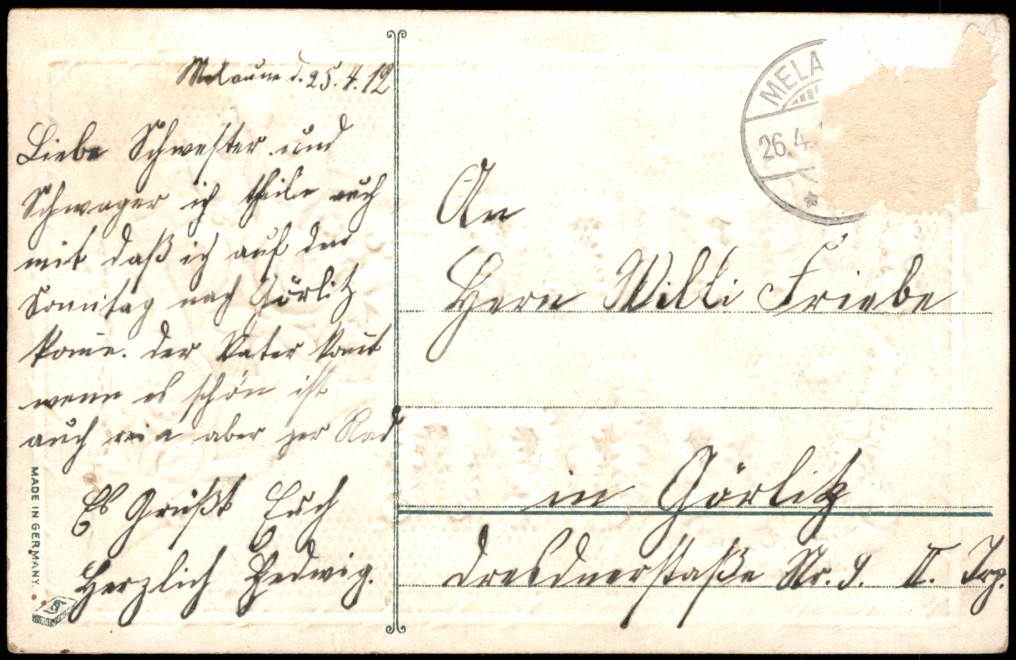 Melaune d. 25.4.12
Liebe Schwester und
Schwager ich theile euch
mit daß ich auf den
Sonntag nach Görlitz
kome. der Vater komt
wenn es schön ist
auch rein aber per Rad
Es Grüßt Euch
Herzlich Hedwig.
MADE IN GERMANY
MELA
26.4.1
An
Hern Willi Friebe
in Görlitz
Dresdnerstaße Nr. 9. II. Trp.